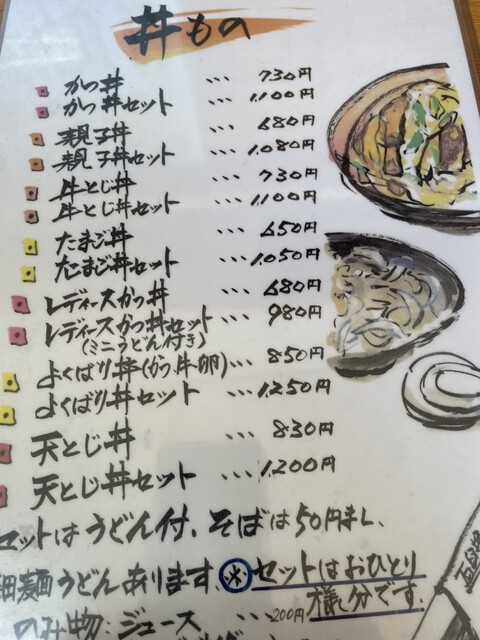 丼もの
かつ丼 … 730円
かつ丼セット … 1,100円
親子丼 … 680円
親子丼セット … 1,080円
牛とじ丼 … 730円
牛とじ丼セット … 1,100円
たまご丼 … 650円
たまご丼セット … 1,050円
レディースかつ丼 … 680円
レディースかつ丼セット … 980円
(ミニうどん付き)
よくばり丼(かつ牛卵) … 850円
よくばり丼セット … 1,250円
天とじ丼 … 830円
天とじ丼セット … 1,200円
セットはうどん付、そばは50円まし、
細麺うどんあります、※セットはおひとり
様分です。
のみ物:ジュース … 200円